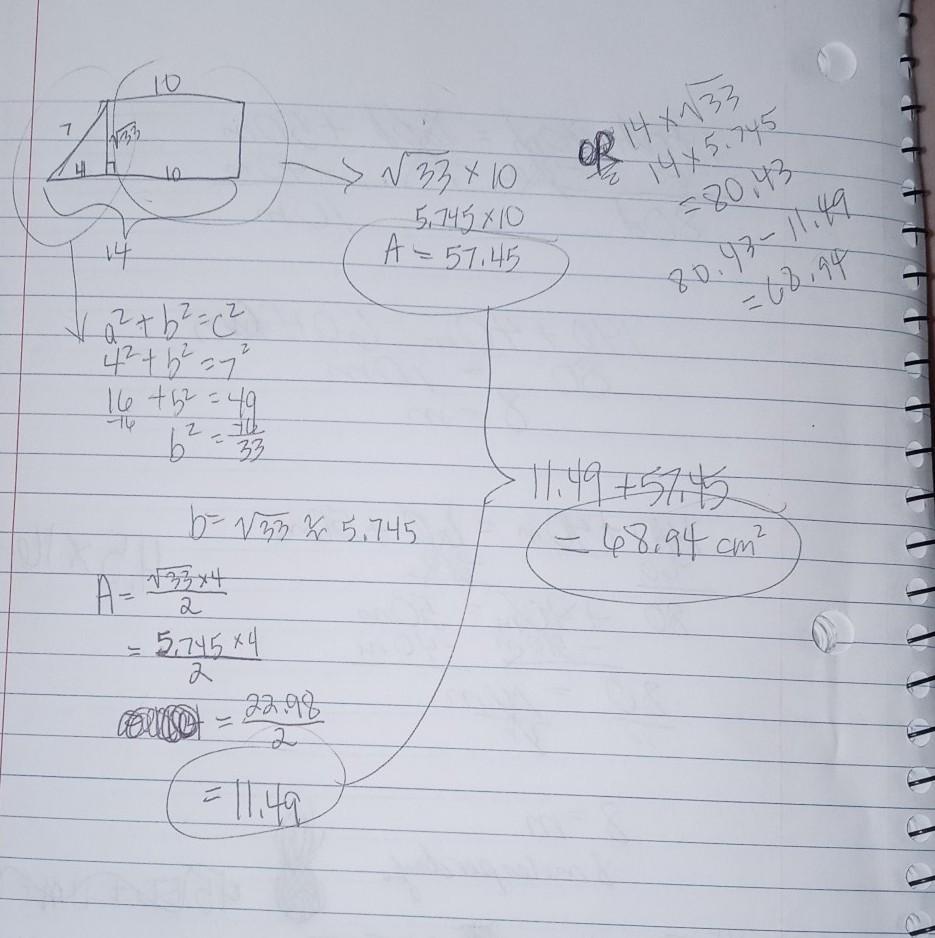 10
7
√33
4
10
14
√33 × 10
5.745×10
A = 57.45
OR 14 × √33
14 × 5.745
= 80.43
80.43 - 11.49
= 68.94
a² + b² = c²
4² + b² = 7²
16 + b² = 49
-16 -16
b² = 33
b = √33 ≈ 5.745
A = √33 × 4 / 2
= 5.745 × 4 / 2
= 22.98 / 2
= 11.49
11.49 + 57.45
= 68.94 cm²